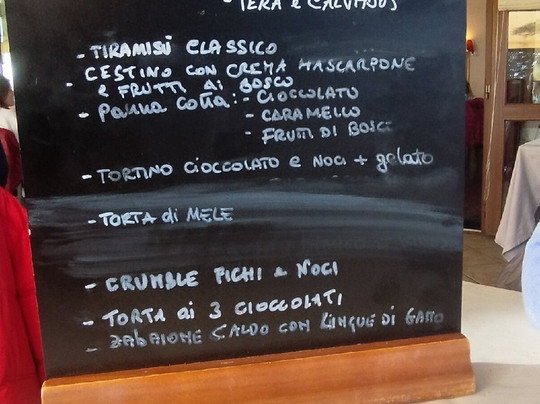 - PERA e CALVADOS
- TIRAMISÙ CLASSICO
- CESTINO CON CREMA MASCARPONE
e FRUTTI di BOSCO
- PANNA COTTA: - CIOCCOLATO
- CARAMELLO
- FRUTTI DI BOSCO
- TORTINO CIOCCOLATO e NOCI + gelato
- TORTA di MELE
- CRUMBLE FICHI e NOCI
- TORTA ai 3 CIOCCOLATI
- ZABAIONE CALDO CON LINGUE DI GATTO